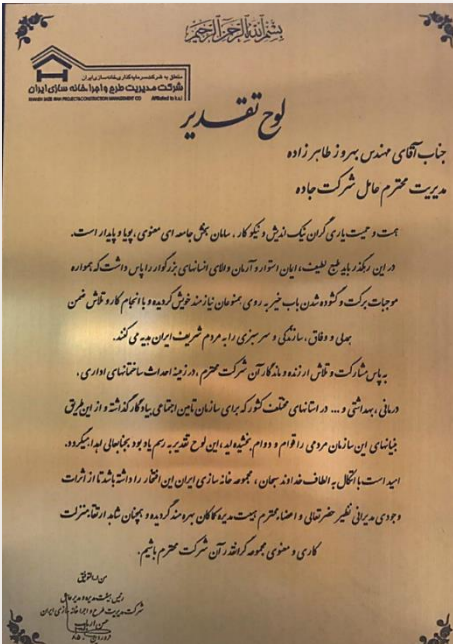 بسم الله الرحمن الرحیم
متعلق به شرکت سرمایه‌گذاری خانه‌سازی ایران
شرکت مدیریت طرح و اجرا خانه سازی ایران
KHANEH SAZIE IRAN PROJECT & CONSTRUCTION MANAGEMENT CO Affiliated to
لوح تقدیر
جناب آقای مهندس بهروز طاهرزاده
مدیریت محترم عامل شرکت جاده
همت و حمیت یاری گران نیک اندیش و نیکوکار، سامان بخش جامعه ای معنوی، پویا و پایدار است.
در این رهگذر باید طبع لطیف، ایمان استوار و آرمان والای انسانهای بزرگوار را پاس داشت که همواره
موجبات برکت و گشوده شدن باب خیر به روی همنوعان نیازمند خویش گردیده و با انجام کار و تلاش ضمن
همدلی و وفاق، سازندگی و سرسبزی را به مردم شریف ایران هدیه می کنند.
به پاس مشارکت و تلاش ارزنده و ماندگار آن شرکت محترم، در زمینه احداث ساختمانهای اداری،
درمانی، بهداشتی و ... در استانهای مختلف کشور که برای سازمان تامین اجتماعی بیادگار گذاشته و از این طریق
بنیانهای این سازمان مردمی را قوام و دوام بخشیده اید، این لوح تقدیر به رسم یادبود بجنابعالی اهدا میگردد.
امید است با اتکال به الطاف خداوند سبحان، مجموعه خانه سازی ایران این افتخار را داشته باشد تا از اثرات
وجودی مدیرانی نظیر حضرتعالی و اعضاء محترم هیئت مدیره کماکان بهره مند گردیده و همچنان شاهد ارتقاء منزلت
کاری و معنوی مجموعه گرانقدر آن شرکت محترم باشیم.
و من الله التوفیق
رئیس هیئت مدیره و مدیر عامل
شرکت مدیریت طرح و اجرا خانه سازی ایران